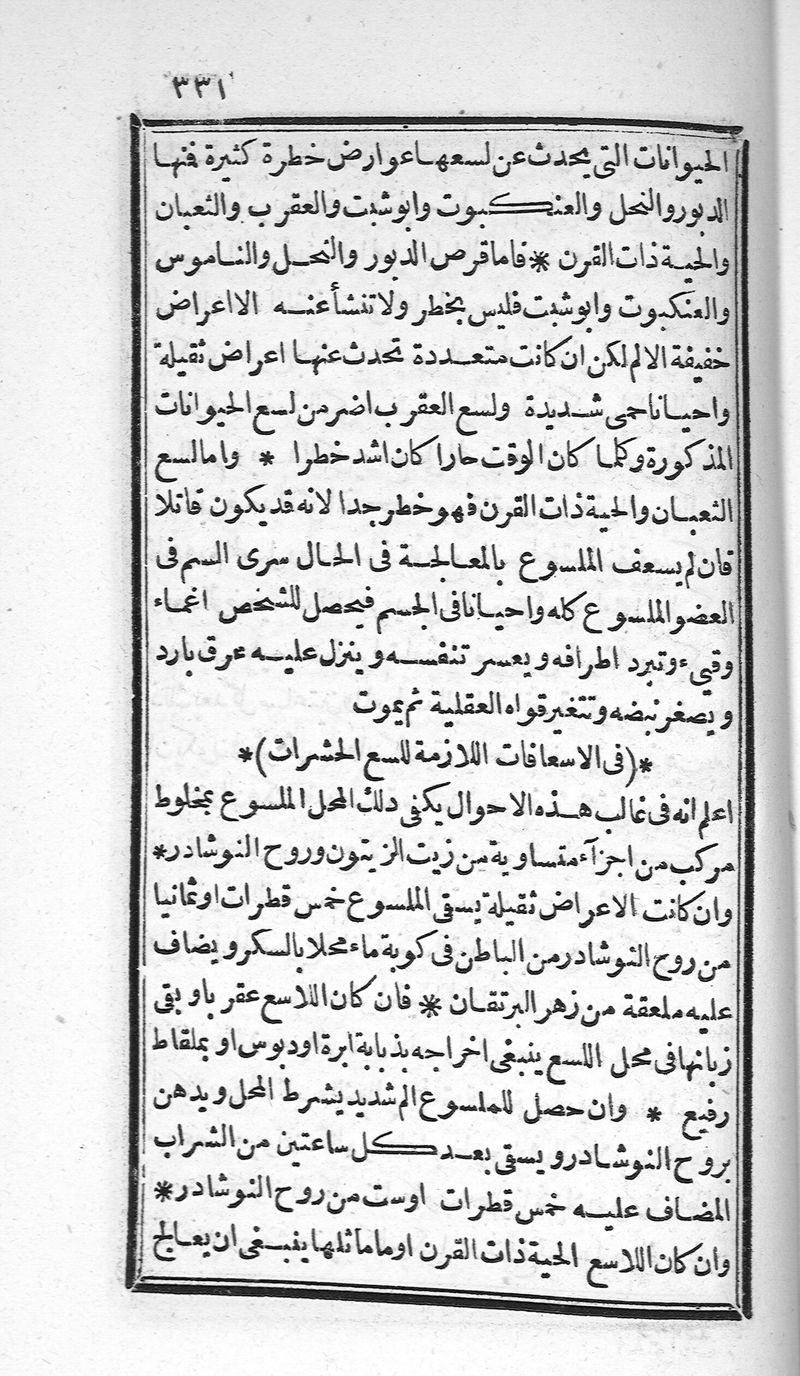 ٣٣١
الحيوانات التى يحدث عن لسعها عوارض خطرة كثيرة فمنها
الدبور والنحل والعنكبوت وابو شبت والعقرب والثعبان
والحية ذات القرن * فاما قرص الدبور والنحل والناموس
والعنكبوت وابو شبت فليس بخطر ولا تنشأ عنه الا اعراض
خفيفة الالم لكن ان كانت متعددة تحدث عنها اعراض ثقيلة
واحيانا حمى شديدة ولسع العقرب اضر من لسع الحيوانات
المذكورة وكلما كان الوقت حارا كان اشد خطرا * وامالسع
الثعبان والحية ذات القرن فهو خطر جدا لانه قد يكون قاتلا
فان لم يسعف الملسوع بالمعالجة فى الحال سرى السم فى
العضو الملسوع كله واحيانا فى الجسم فيحصل للشخص اغماء
وقيء وتبرد اطرافه ويعسر تنفسه وينزل عليه عرق بارد
ويصغر نبضه وتتغير قواه العقلية ثم يموت
*(فى الاسعافات اللازمة للسع الحشرات)*
اعلم انه فى غالب هذه الاحوال يكفى دلك المحل الملسوع بمخلوط
مركب من اجزآء متساوية من زيت الزيتون وروح النوشادر*
وان كانت الاعراض ثقيلة يسقى الملسوع خمس قطرات او ثمانيا
من روح النوشادر من الباطن فى كوبة ماء محلا بالسكر ويضاف
عليه ملعقة من زهر البرتقان * فان كان اللاسع عقربا وبقى
زبانها فى محل اللسع ينبغى اخراجه بذبابة ابرة او دبوس او بملقاط
رفيع * وان حصل للملسوع الم شديد يشرط المحل ويدهن
بروح النوشادر ويسقى بعد كل ساعتين من الشراب
المضاف عليه خمس قطرات اوست من روح النوشادر*
وان كان اللاسع الحية ذات القرن او ما ماثلها ينبغى ان يعالج